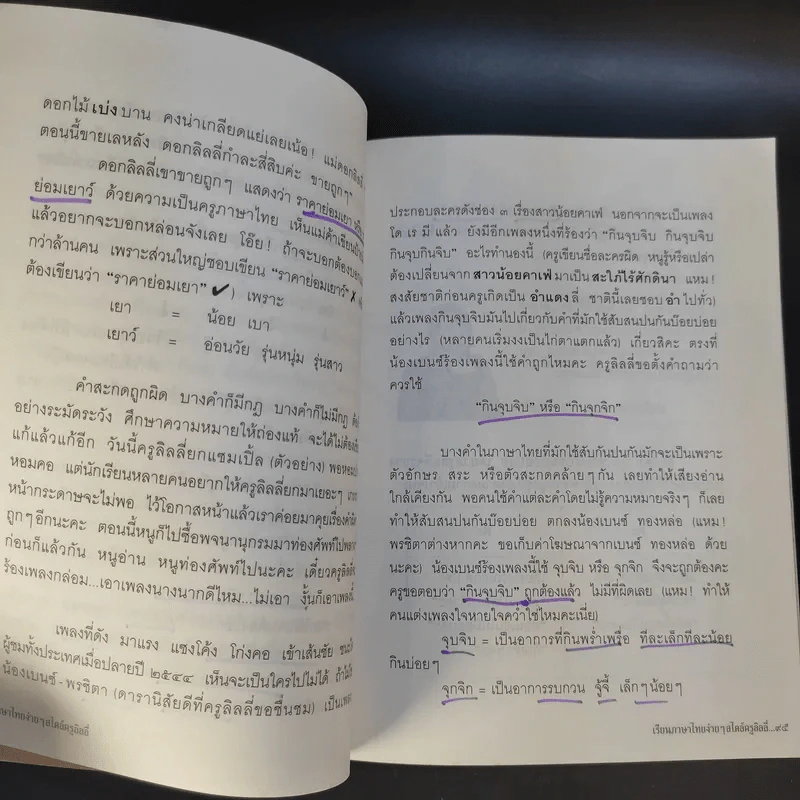 ดอกไม้ เบ่ง บาน คงน่าเกลียดแย่เลยเน้อ! แม่ดอกลิลลี่
ตอนนี้ขายเลหลัง ดอกลิลลี่กำละสี่สิบค่ะ ขายถูกๆ
ดอกลิลลี่เขาขายถูกๆ แสดงว่า ราคาย่อมเยา
ย่อมเยาว์ ด้วยความเป็นครูภาษาไทย เห็นแม่ค้าเขียนป้าย
แล้วอยากจะบอกหล่อนจังเลย โอ๊ย! ถ้าจะบอกต้องบอก
กว่าล้านคน เพราะส่วนใหญ่ชอบเขียน “ราคาย่อมเยาว์” ✗
ต้องเขียนว่า “ราคาย่อมเยา” ✓) เพราะ
เยา = น้อย เบา
เยาว์ = อ่อนวัย รุ่นหนุ่ม รุ่นสาว
คำสะกดถูกผิด บางคำก็มีกฎ บางคำก็ไม่มีกฎ ต้อง
อย่างระมัดระวัง ศึกษาความหมายให้ถ่องแท้ จะได้ไม่ต้อง
แก้แล้วแก้อีก วันนี้ครูลิลลี่ยกแซมเปิ้ล (ตัวอย่าง) พอหอม
หอมคอ แต่นักเรียนหลายคนอยากให้ครูลิลลี่ยกมาเยอะๆ
หน้ากระดาษจะไม่พอ ไว้โอกาสหน้าแล้วเราค่อยมาคุยเรื่องคำ
ถูกๆ อีกนะคะ ตอนนี้หนูก็ไปซื้อพจนานุกรมมาท่องศัพท์ไป
ก่อนก็แล้วกัน หนูอ่าน หนูท่องศัพท์ไปนะคะ เดี๋ยวครูลิลลี่
ร้องเพลงกล่อม...เอาเพลงนางนากดีไหม...ไม่เอา งั้นก็เอาเพลงนี้
เพลงที่ดัง มาแรง แซงโค้ง โก่งคอ เข้าเส้นชัย
ผู้ชมทั้งประเทศเมื่อปลายปี ๒๕๔๔ เห็นจะเป็นใครไปไม่ได้
น้องเบนซ์-พรชิตา (ดารานิสัยดีที่ครูลิลลี่ขอชื่นชม) เป็นเพลง
ภาษาไทยง่ายๆ สไตล์ครูลิลลี่
ประกอบละครดังช่อง ๓ เรื่องสาวน้อยคาเฟ่ นอกจากจะเป็นเพลง
โด เร มี แล้ว ยังมีอีกเพลงหนึ่งที่ร้องว่า “กินจุบจิบ กินจุบจิบ
กินจุบกินจิบ” อะไรทำนองนี้ (ครูเขียนชื่อละครผิด หนูรู้หรือเปล่า
ต้องเปลี่ยนจาก สาวน้อยคาเฟ่ มาเป็น สะใภ้ไร้ศักดินา แหม!
สงสัยชาติก่อนครูเกิดเป็น อำแดง ลี่ ชาตินี้เลยชอบ อำ ไปทั่ว)
แล้วเพลงกินจุบจิบมันไปเกี่ยวกับคำที่มักใช้สับสนปนกันบ๊อยบ่อย
อย่างไร (หลายคนเริ่มงงเป็นไก่ตาแตกแล้ว) เกี่ยวสิคะ ตรงที่
น้องเบนซ์ร้องเพลงนี้ใช้คำถูกไหมคะ ครูลิลลี่ขอตั้งคำถามว่า
ควรใช้
“กินจุบจิบ” หรือ “กินจุกจิก”
บางคำในภาษาไทยที่มักใช้สับกันปนกันมักจะเป็นเพราะ
ตัวอักษร สระ หรือตัวสะกดคล้ายๆ กัน เลยทำให้เสียงอ่าน
ใกล้เคียงกัน พอคนใช้คำแต่ละคำโดยไม่รู้ความหมายจริงๆ ก็เลย
ทำให้สับสนปนกันบ๊อยบ่อย ตกลงน้องเบนซ์ ทองหล่อ (แหม!
พรชิตาต่างหากคะ ขอเก็บค่าโฆษณาจากเบนซ์ ทองหล่อ ด้วย
นะคะ) น้องเบนซ์ร้องเพลงนี้ใช้ จุบจิบ หรือ จุกจิก จึงจะถูกต้องคะ
ครูขอตอบว่า “กินจุบจิบ” ถูกต้องแล้ว ไม่มีที่ผิดเลย (แหม! ทำให้
คนแต่งเพลงใจหายใจคว่ำใช่ไหมคะเนี่ย)
จุบจิบ = เป็นอาการที่กินพร่ำเพรื่อ ทีละเล็กทีละน้อย
กินบ่อยๆ
จุกจิก = เป็นอาการรบกวน จู้จี้ เล็กๆ น้อยๆ
เรียนภาษาไทยง่ายๆ สไตล์ครูลิลลี่...๙๕